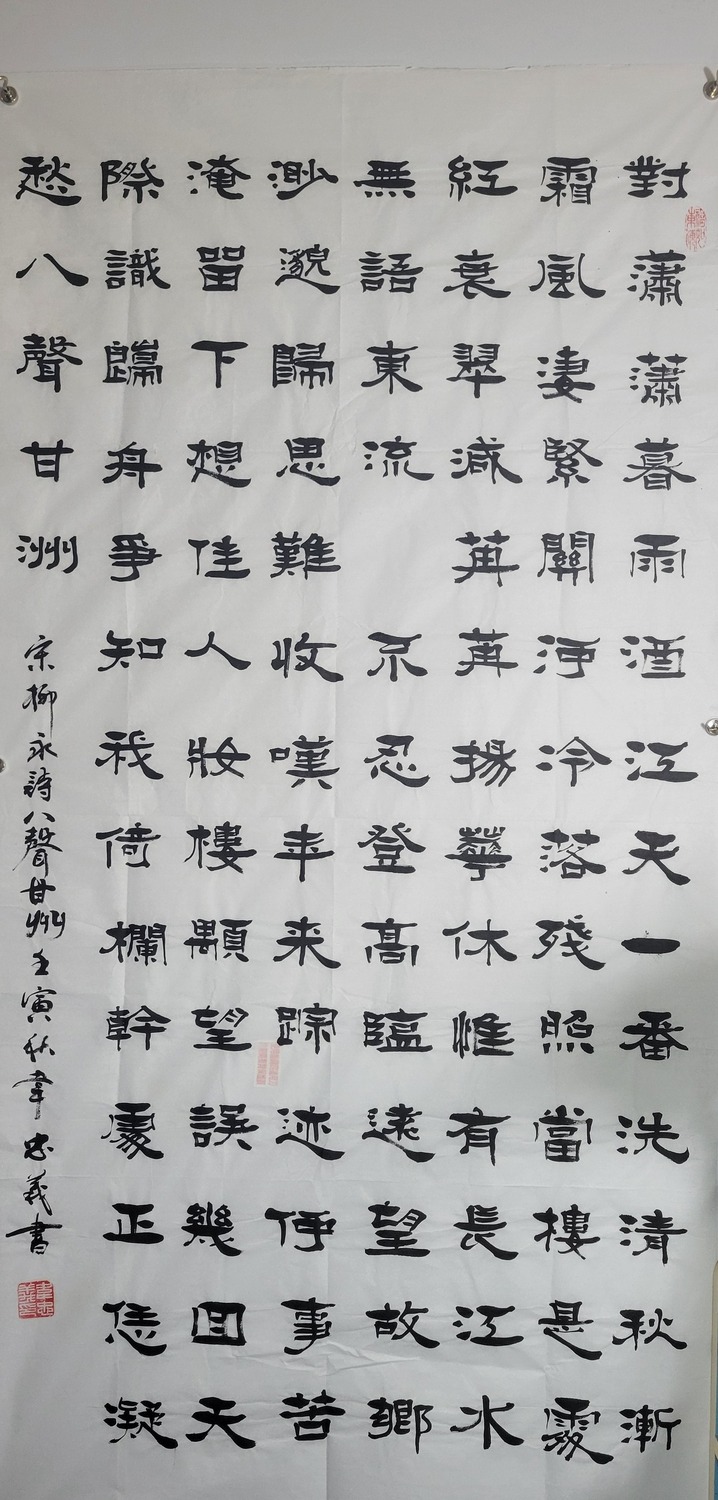 對瀟瀟暮雨洒江天一番洗清秋漸
霜風淒緊關河冷落殘照當樓是處
紅衰翠減苒苒揚華休惟有長江水
無語東流 不忍登高臨遠望故鄉
渺邈歸思難收嘆年来踪迹何事苦
淹留下想佳人妝樓顒望誤幾回天
際識歸舟爭知我倚欄幹處正恁凝
愁八聲甘洲
宋柳永詩八聲甘州壬寅秋韋忠義書